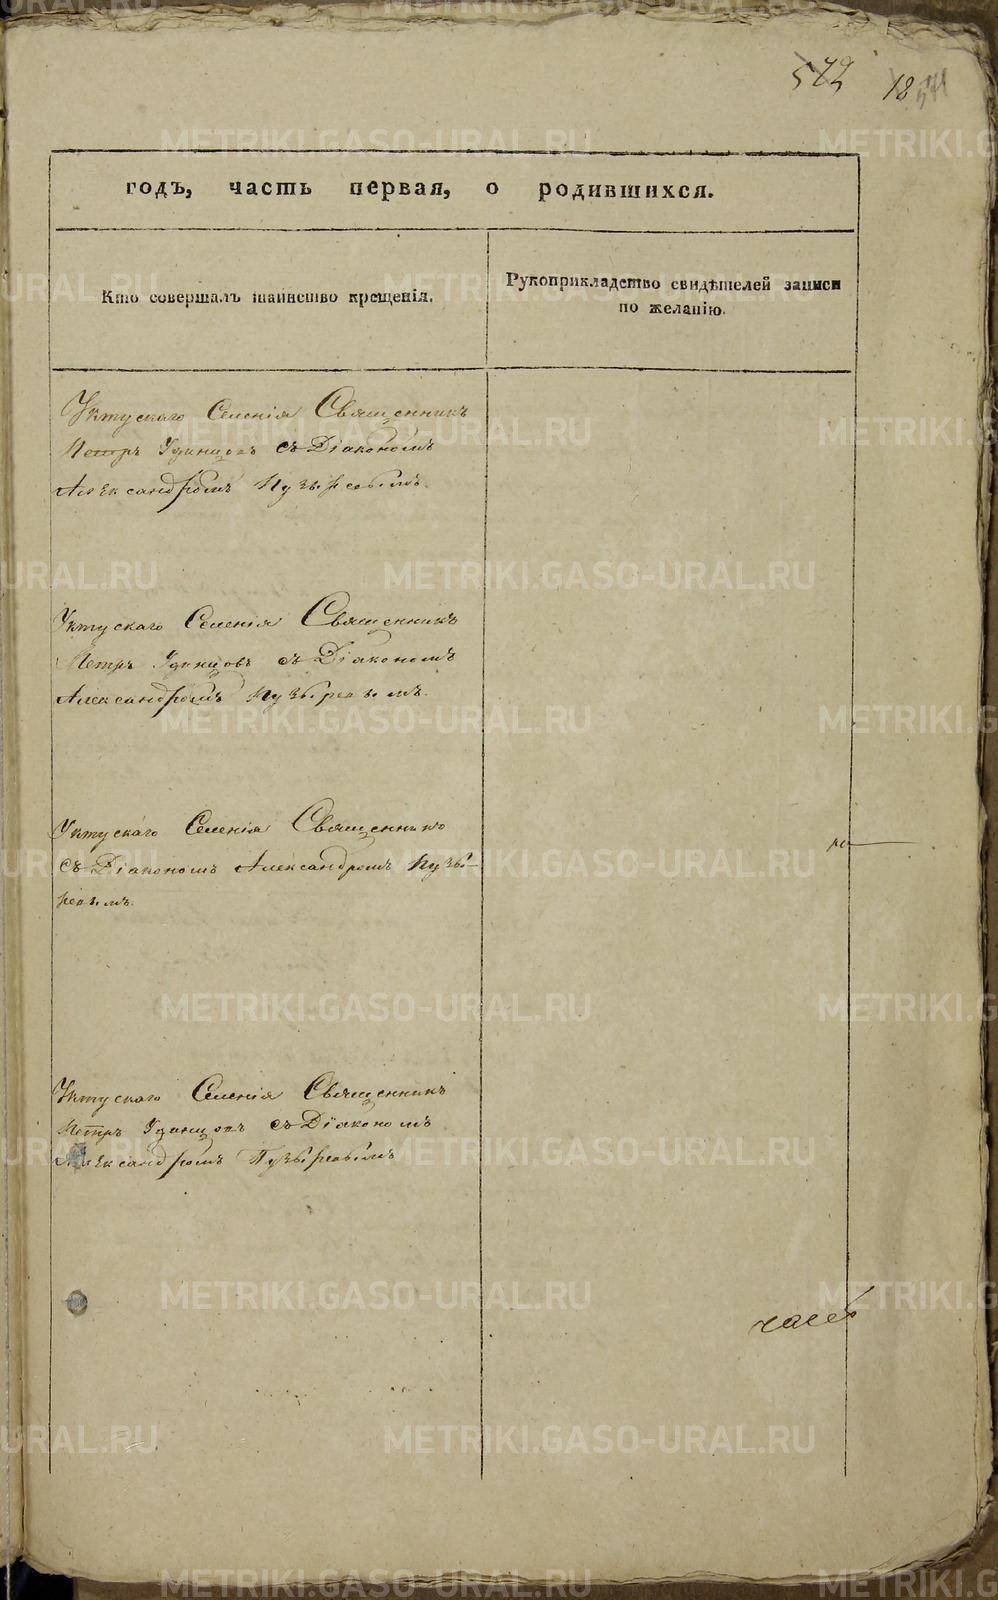 572 18 571
годъ, часть первая, о родившихся.
Кто совершалъ таинство крещенія.
Рукоприкладство свидѣтелей записи
по желанію.
Уктускаго Селенія Священникъ
Петръ Удинцовъ съ Діакономъ
Александромъ Пузыревымъ.
Уктускаго Селенія Священникъ
Петръ Удинцовъ съ Діакономъ
Александромъ Пузыревымъ.
Уктускаго Селенія Священникъ
съ Діакономъ Александромъ Пузы-
ревымъ.
Уктускаго Селенія Священникъ
Петръ Удинцовъ съ Діакономъ
Александромъ Пузыревымъ
METRIKI.GASO-URAL.RU